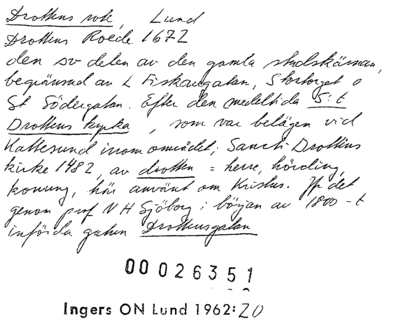 Drottens rote, Lund
Drottens Roede 1672
den sv delen av den gamla stadskärnan,
begränsad av L Fiskaregatan, Stortorget o
St Södergatan. Efter den medeltida S:t
Drottens kyrka, som var belägen vid
Kattesund inom området; Sancti Drottens
kirke 1482, av drotten = herre, hövding,
konung, här använt om Kristus. Jfr det
genom prof N H Sjöborg i början av 1800-t
införda gatun. Drottensgatan
00026351
Ingers ON Lund 1962:20